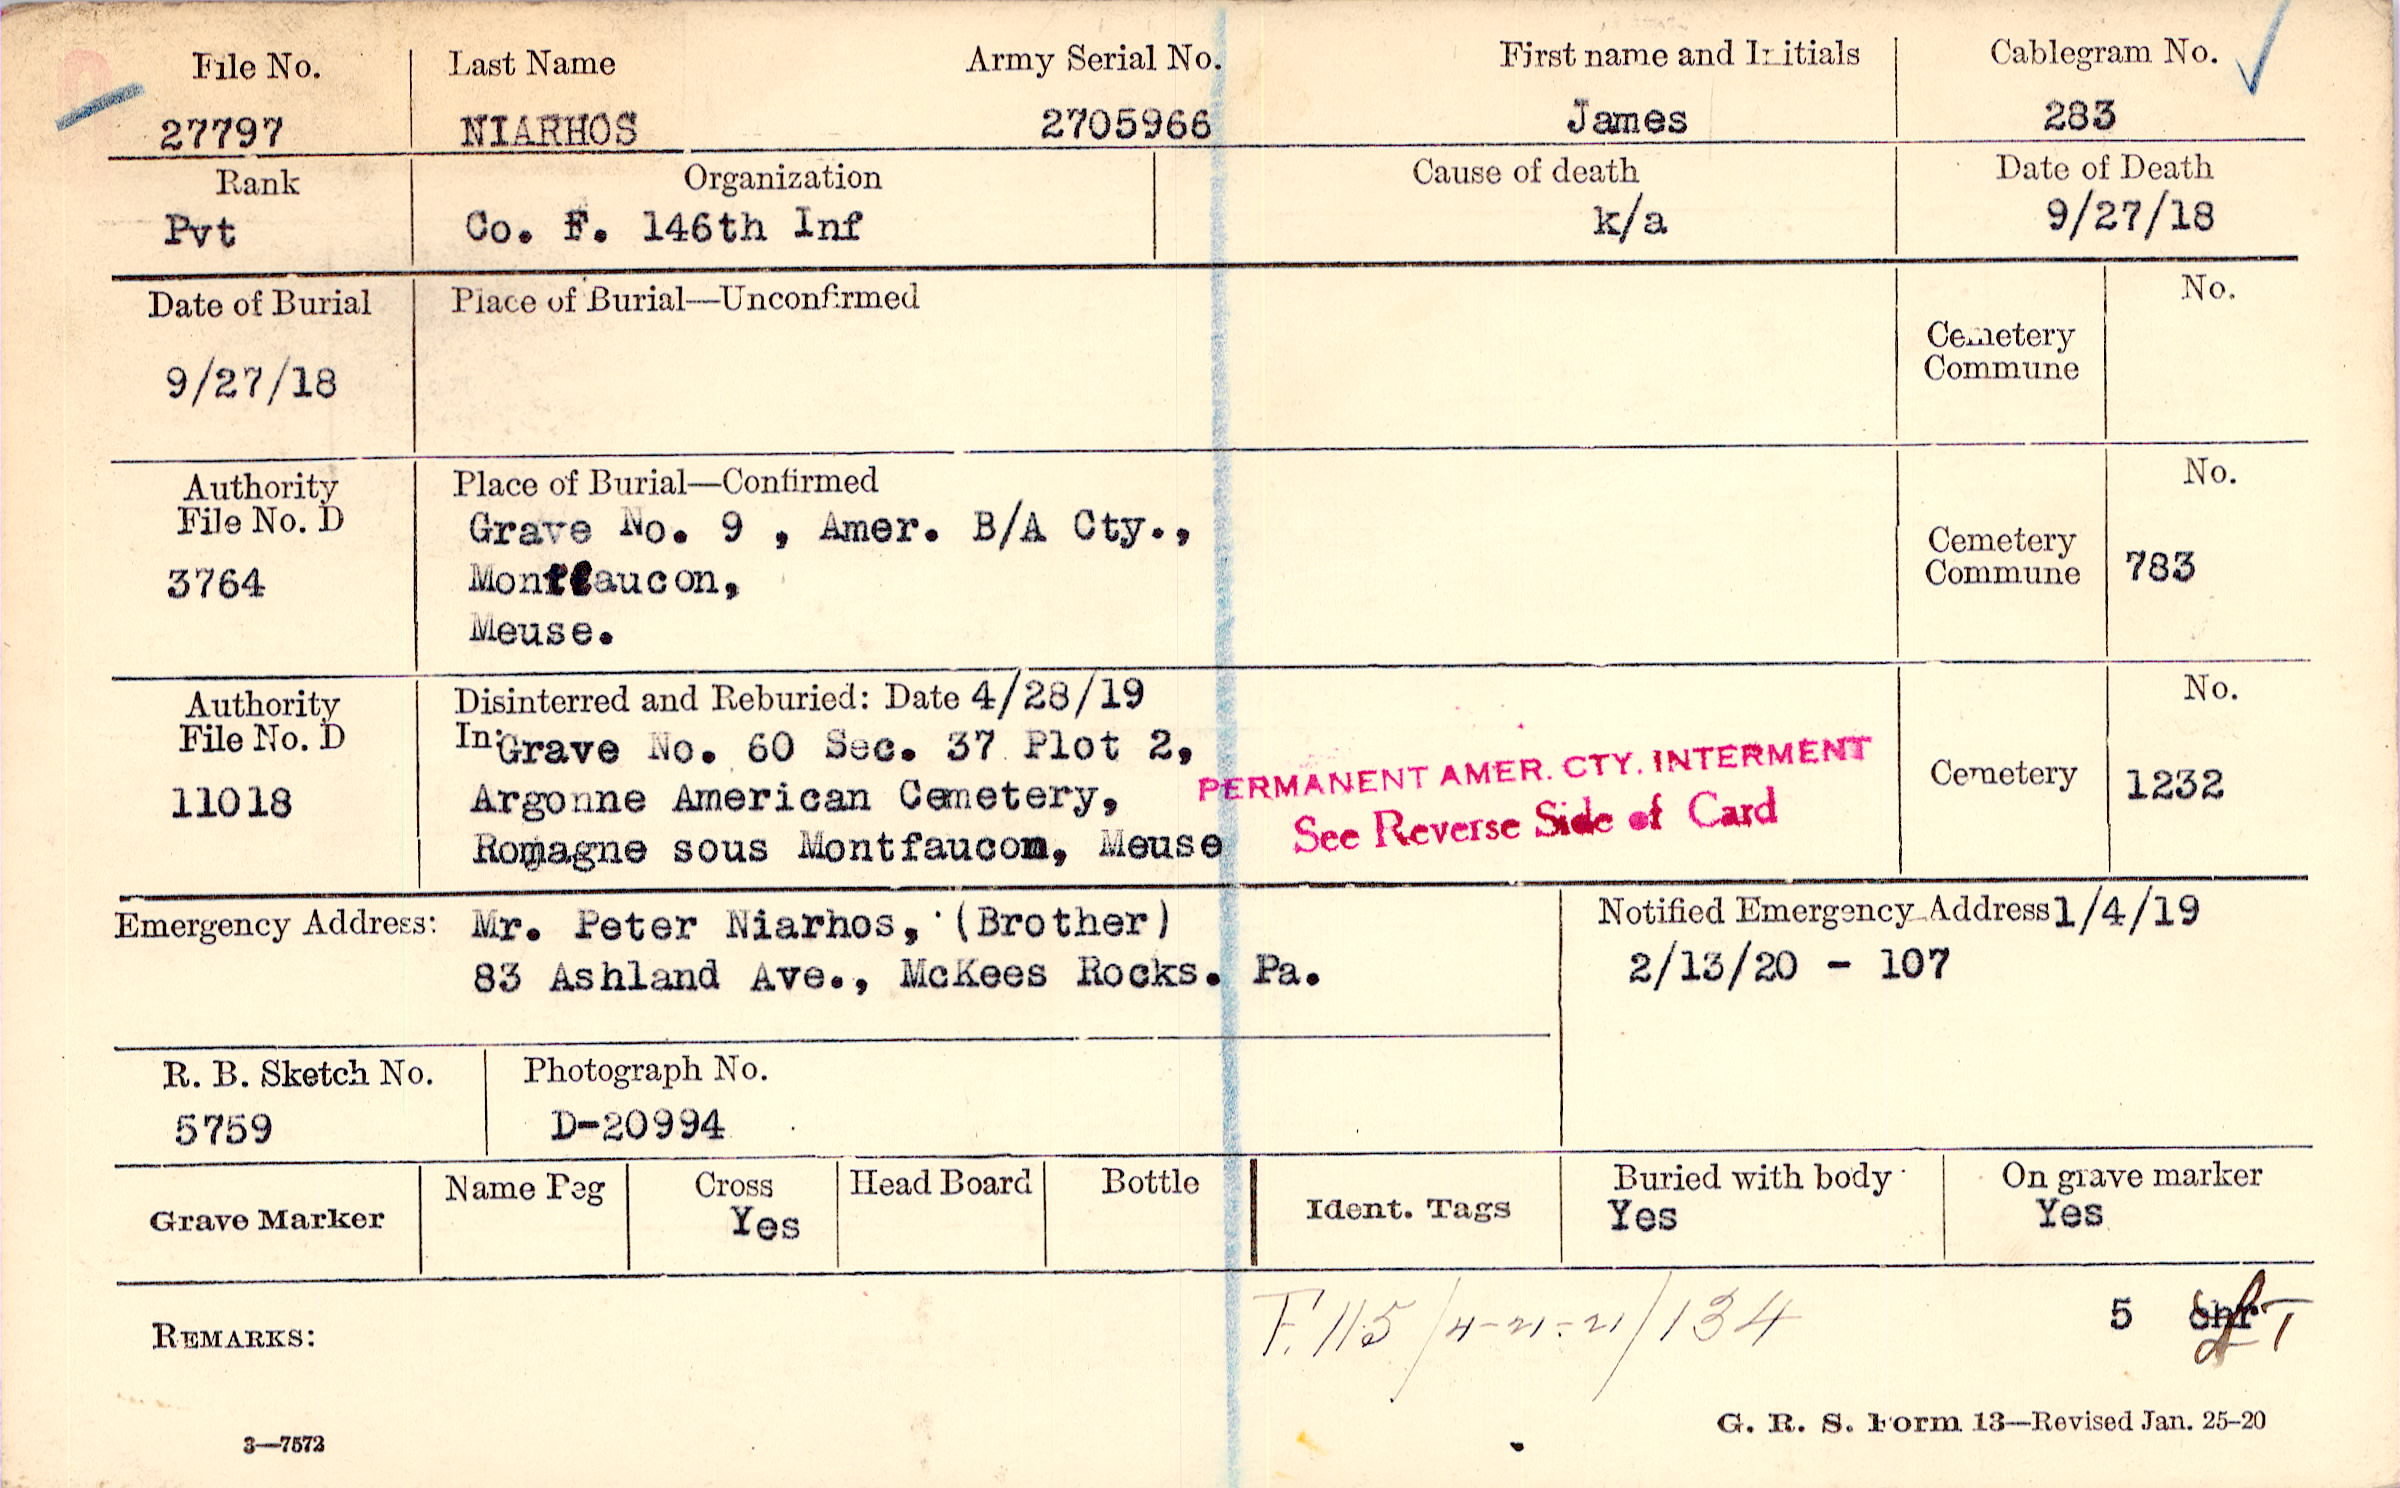 File No. Last Name Army Serial No. First name and Initials Cablegram No.
27797 NIARHOS 2705966 James 283
Rank Organization Cause of death Date of Death
Pvt Co. F. 146th Inf k/a 9/27/18
Date of Burial Place of Burial—Unconfirmed No.
9/27/18
Cemetery
Commune
Authority Place of Burial—Confirmed No.
File No. D
3764
Grave No. 9 , Amer. B/A Cty.,
Montfaucon,
Meuse.
Cemetery
Commune 783
Authority Disinterred and Reburied: Date 4/28/19 No.
File No. D
11018
In: Grave No. 60 Sec. 37 Plot 2,
Argonne American Cemetery,
Romagne sous Montfaucon, Meuse
PERMANENT AMER. CTY. INTERMENT
See Reverse Side of Card
Cemetery 1232
Emergency Address: Mr. Peter Niarhos, (Brother)
83 Ashland Ave., McKees Rocks. Pa.
Notified Emergency Address 1/4/19
2/13/20 - 107
R. B. Sketch No. Photograph No.
5759 D-20994
Grave Marker Name Peg Cross Head Board Bottle Ident. Tags Buried with body On grave marker
Yes Yes Yes
F.115/4-21-21/134
5
REMARKS:
3—7572
G. R. S. Form 13—Revised Jan. 25-20